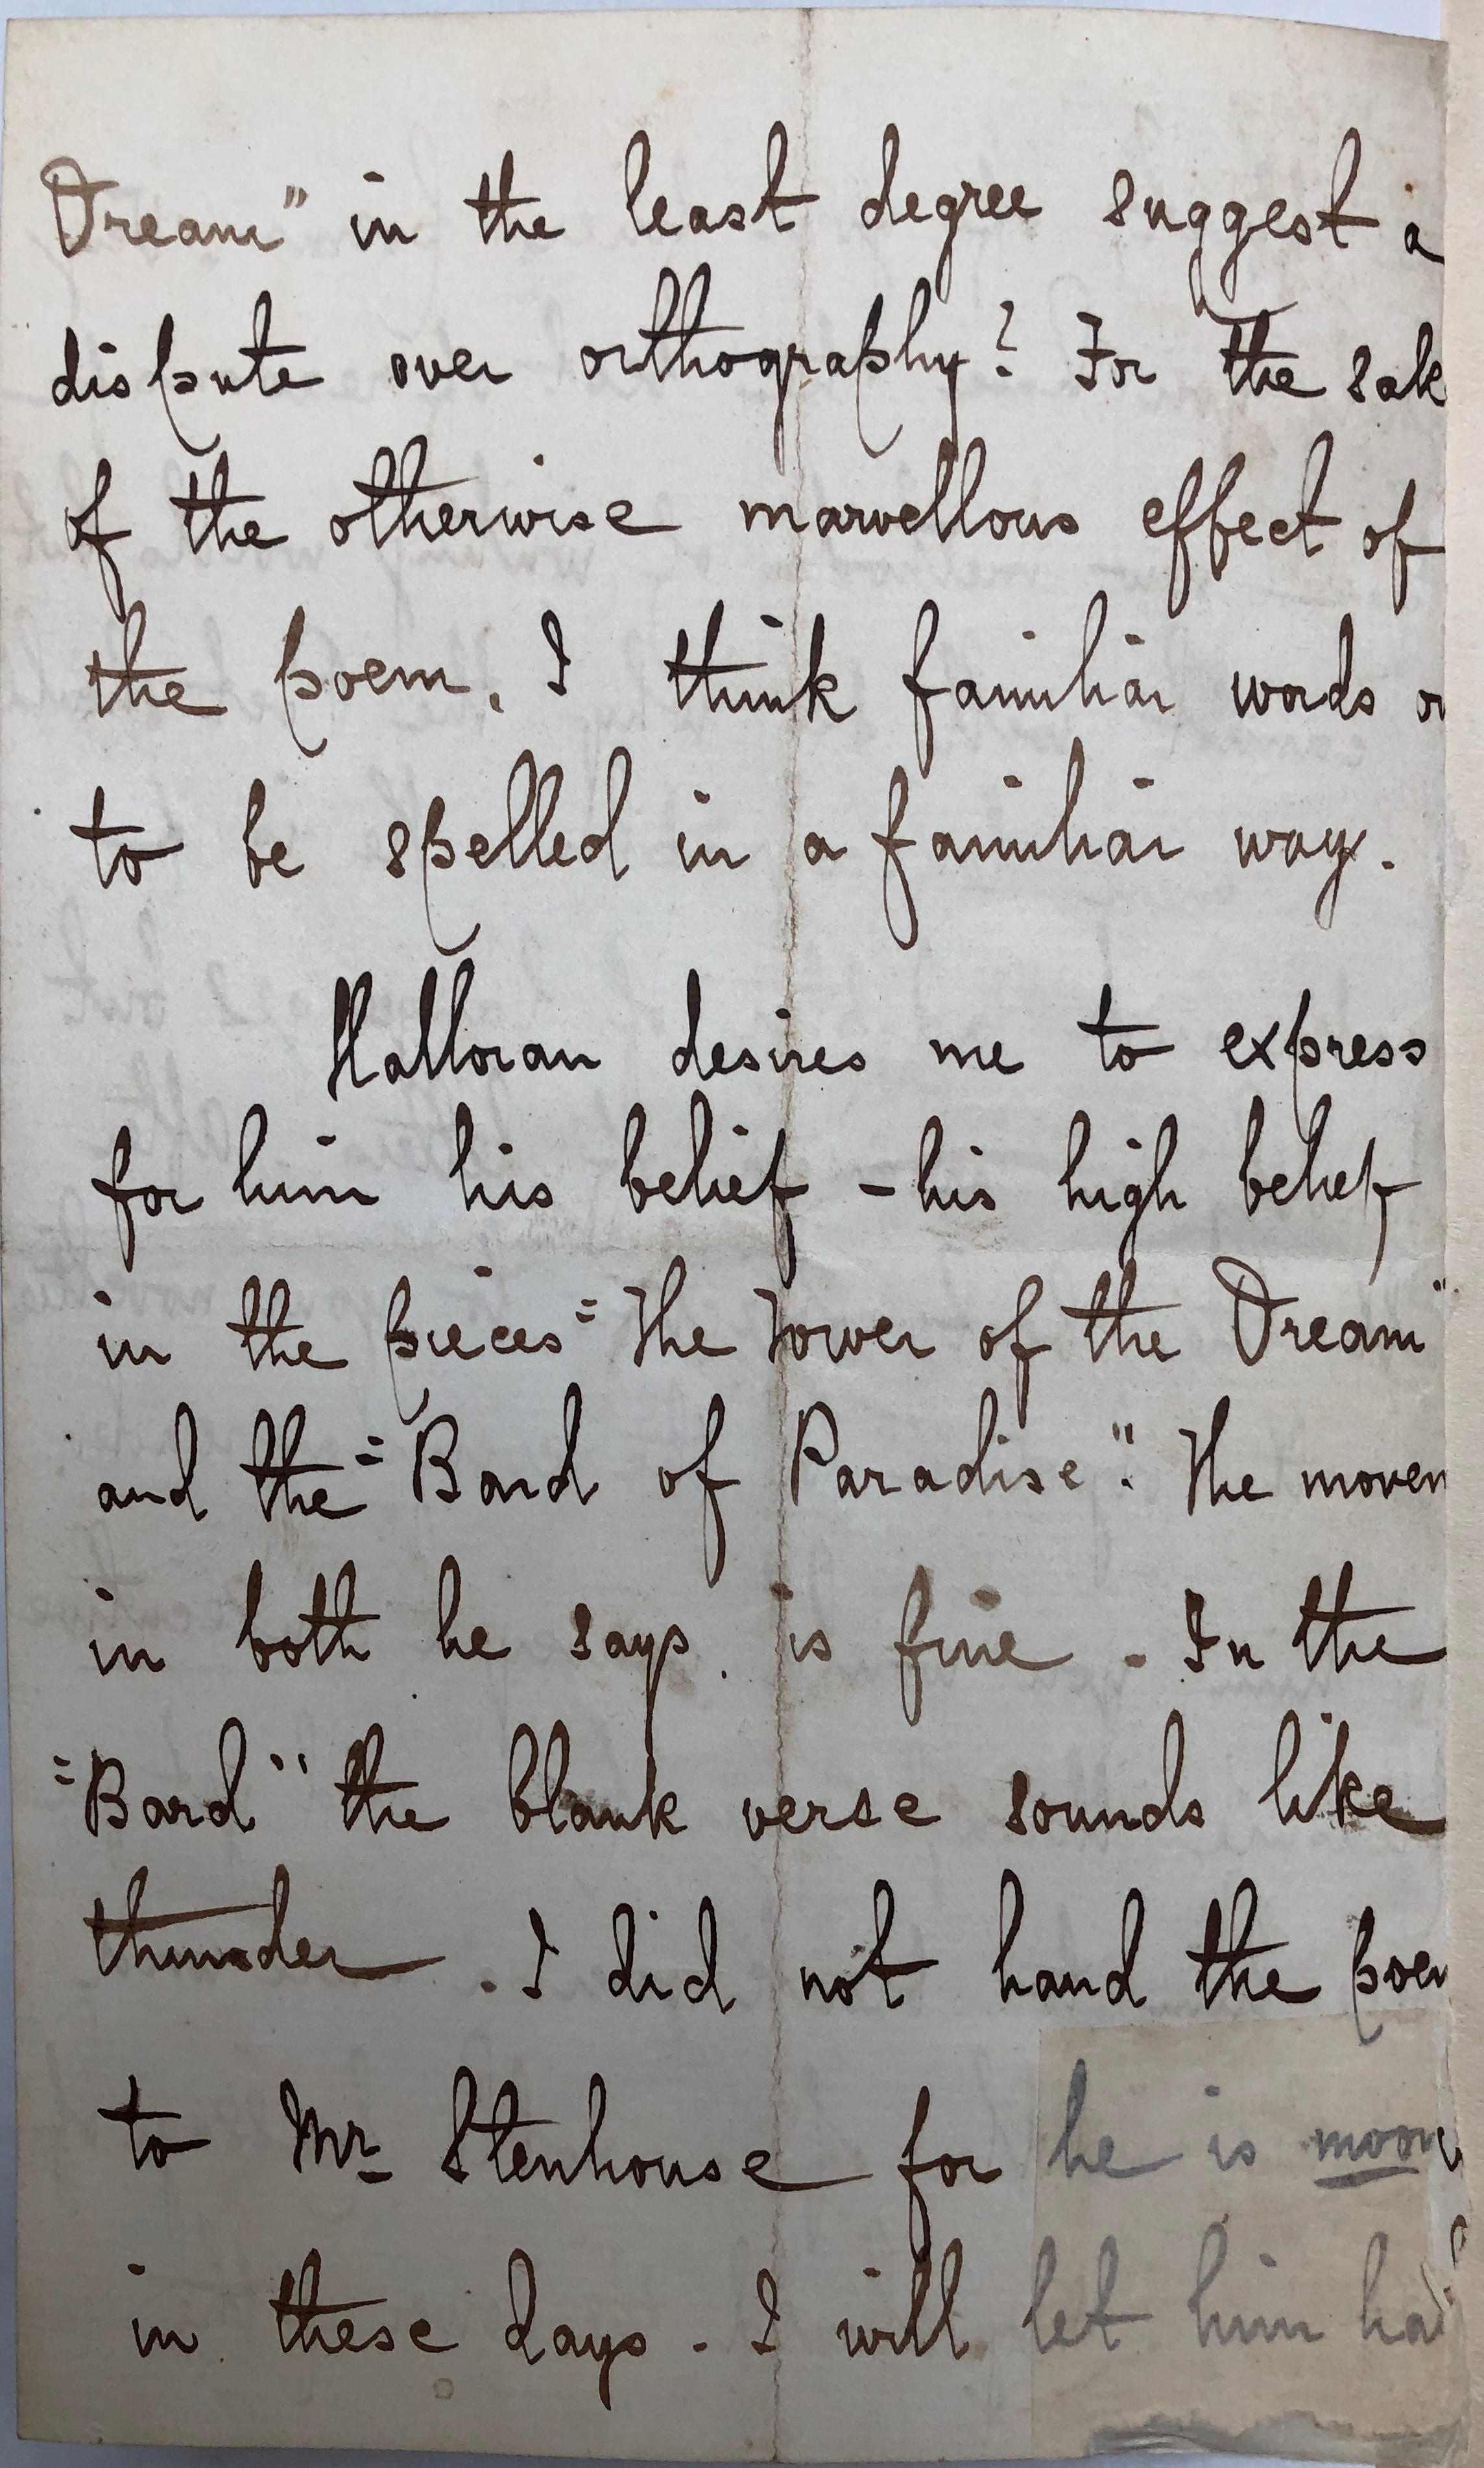 Dream" in the least degree suggest a
dispute over orthography? For the sak
of the otherwise marvellous effect of
the poem, I think familiar words o
to be spelled in a familiar way.
Halloran desires me to express
for him his belief - his high belief
in the pieces "The Tower of the Dream"
and the "Bard of Paradise". The movem
in both he says, is fine - In the
"Bard" the blank verse sounds like
thunder. I did not hand the poem
to Mr Stenhouse for he is moon
in these days - I will let him ha